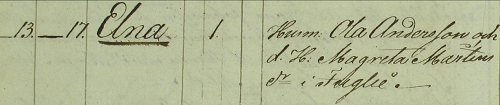 13. — 17. Elna. 1. Husm: Ola Andersson och
d. H: Magreta Mårtens
Dr i Fuglie. —